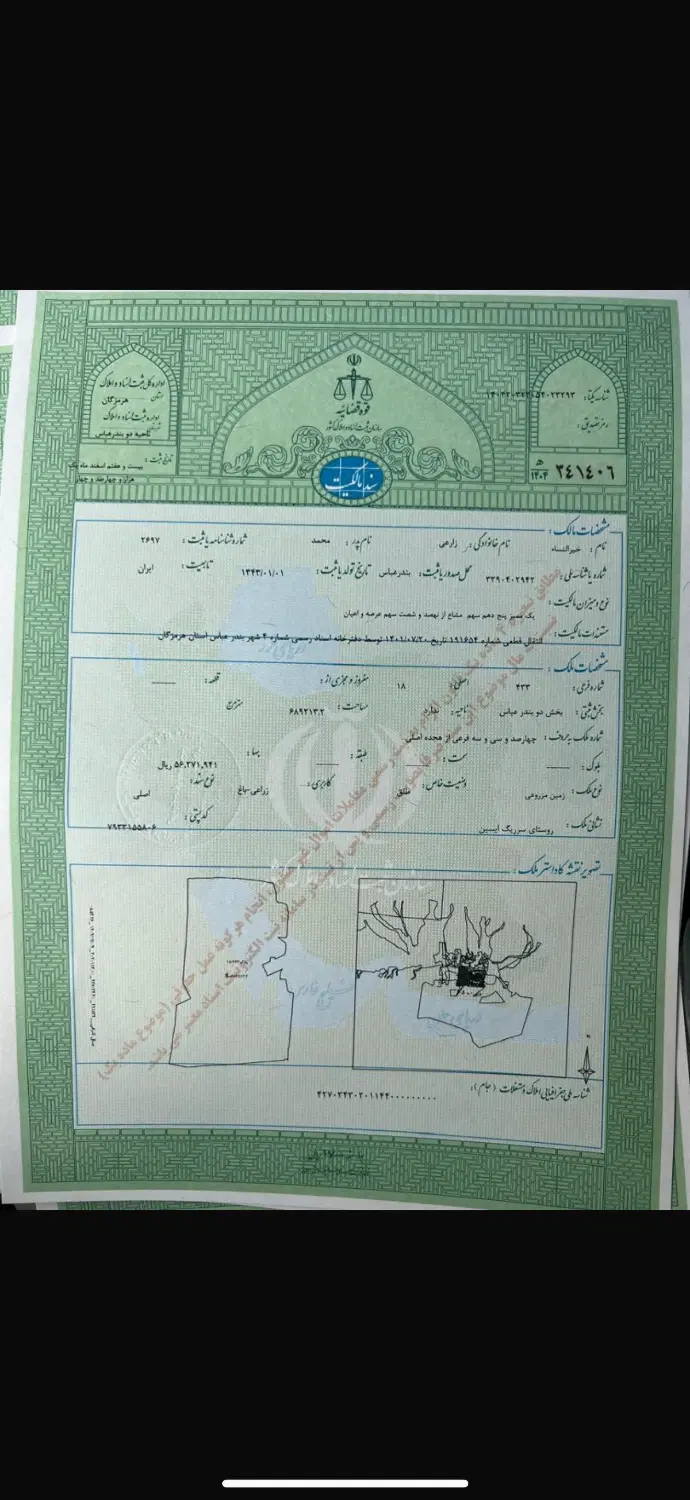 قوه قضائیه
سازمان ثبت اسناد و املاک کشور
سند مالکیت
اداره کل ثبت اسناد و املاک
استان
هرمزگان
اداره ثبت اسناد و املاک
ناحیه دو بندرعباس
تاریخ ثبت :
بیست و هفتم اسفند ماه یک
هزار و چهارصد و چهار
شناسه یکتا:
رمز تصدیق :
۳۴۱۴۰۶
۱۴۰۴
مشخصات مالک :
نام : خیرالنساء نام خانوادگی : زارهی نام پدر : محمد شماره شناسنامه یا ثبت : ۲۶۹۷
شماره یا شناسه ملی : ۳۳۹۰۴۰۲۹۴۲ محل صدور یا ثبت : بندرعباس تاریخ تولد یا ثبت : ۱۳۴۳/۰۱/۰۱ تابعیت : ایران
نوع و میزان مالکیت : یک ممیز پنج دهم سهم مشاع از نهصد و شصت سهم عرصه و اعیان
مستندات مالکیت : انتقال قطعی شماره ۱۹۱۶۵۴ تاریخ ۱۴۰۱/۰۷/۲۰ توسط دفترخانه اسناد رسمی شماره ۴ شهر بندر عباس استان هرمزگان
مشخصات ملک :
شماره فرعی : ۴۳۳ اصلی : ۱۸ مفروز و مجزی از : قطعه :
بخش ثبتی : بخش دو بندر عباس ناحیه : ندارد مساحت : ۶۸۹۲۱۳.۲ مترمربع
شماره ملک به حروف : چهارصد و سی و سه فرعی از هجده اصلی
بلوک : سمت : طبقه : بها : ۵۶,۳۷۱,۹۴۱ ریال
نوع ملک : زمین مزروعی وضعیت خاص : طلق کاربری : زراعی-باغ نوع سند : اصلی
نشانی ملک : روستای سرریگ ایسین کد پستی : ۷۹۳۳۱۵۵۸۰۶
تصویر نقشه کاداستر ملک :
شناسه ملی جغرافیایی املاک و مستغلات (جام) :